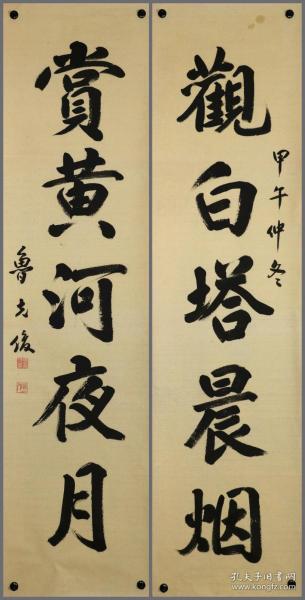 觀白塔晨烟
甲午仲冬
賞黄河夜月
魯克俊
孔夫子旧书网
www.kongfz.com